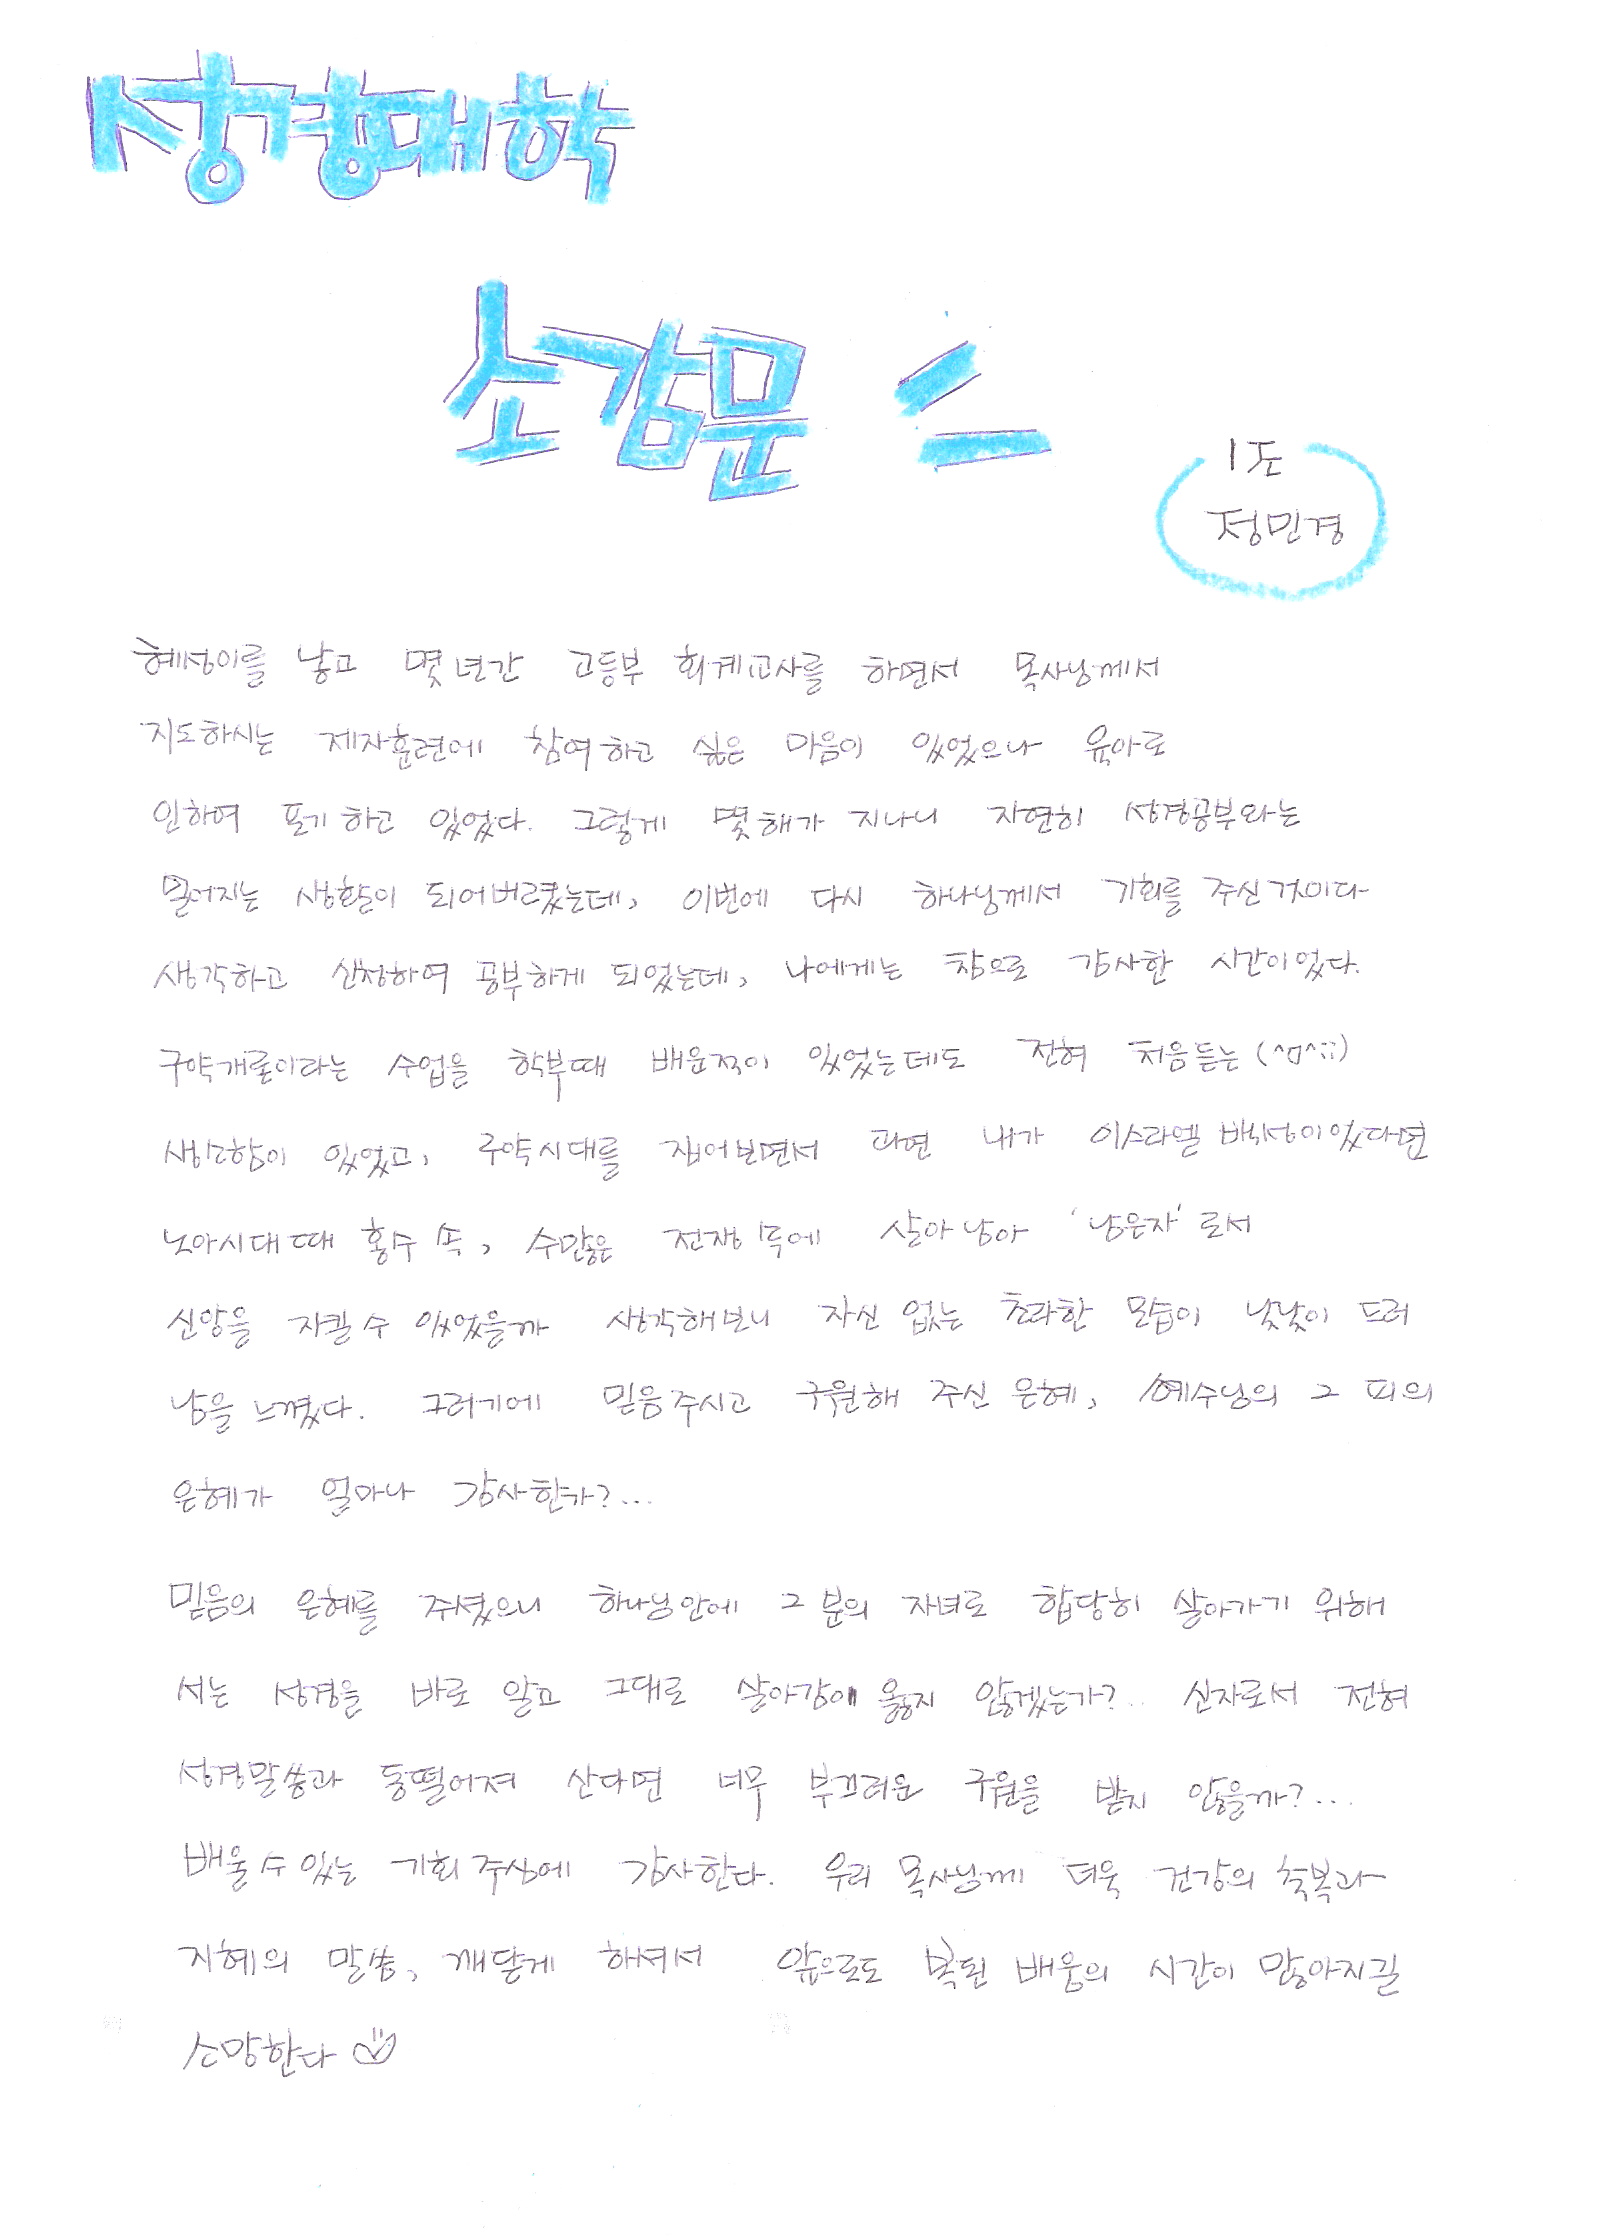 성경대학
소감문
1조
정민경
혜성이를 낳고 몇 년간 고등부 회계교사를 하면서 목사님께서
지도하시는 제자훈련에 참여하고 싶은 마음이 있었으나 육아로
인하여 포기하고 있었다. 그렇게 몇해가 지나니 자연히 성경공부와는
멀어지는 생활이 되어버렸는데, 이번에 다시 하나님께서 기회를 주신것이다
생각하고 신청하여 공부하게 되었는데, 나에게는 참으로 감사한 시간이었다.
구약개론이라는 수업을 학부때 배운적이 있었는데도 전혀 처음듣는(^ㅁ^;;)
생소함이 있었고, 구약시대를 집어보면서 과연 내가 이스라엘 백성이었다면
노아시대때 홍수 속, 수많은 전쟁 中에 살아남아 '남은자'로서
신앙을 지킬 수 있었을까 생각해보니 자신 없는 초라한 모습이 낱낱이 드러
남을 느꼈다. 그러기에 믿음주시고 구원해 주신 은혜, 예수님의 그 피의
은혜가 얼마나 감사한가?...
믿음의 은혜를 주셨으니 하나님안에 그 분의 자녀로 합당히 살아가기 위해
서는 성경을 바로 알고 그대로 살아감이 옳지 않겠는가?.. 신자로서 전혀
성경말씀과 동떨어져 산다면 너무 부끄러운 구원을 받지 않을까?...
배울 수 있는 기회 주심에 감사한다. 우리 목사님께 더욱 건강의 축복과
지혜의 말씀, 깨닫게 하셔서 앞으로도 복된 배움의 시간이 많아지길
소망한다